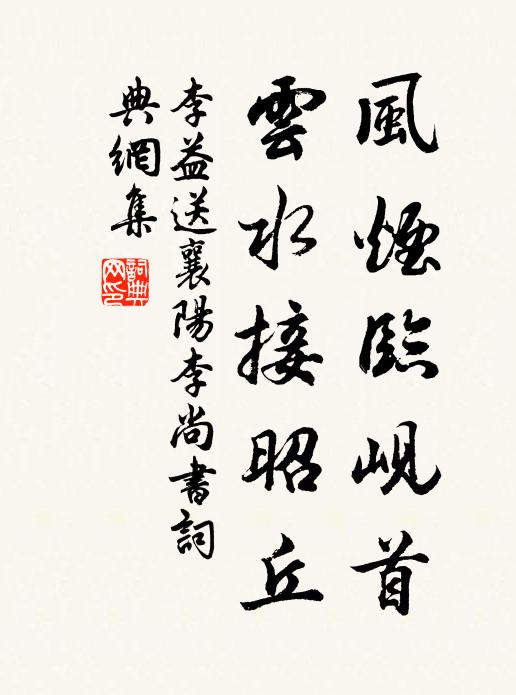 風煙臨峴首
雲水接昭丘
李益送襄陽李尚書詞
典網集
詞典
网印